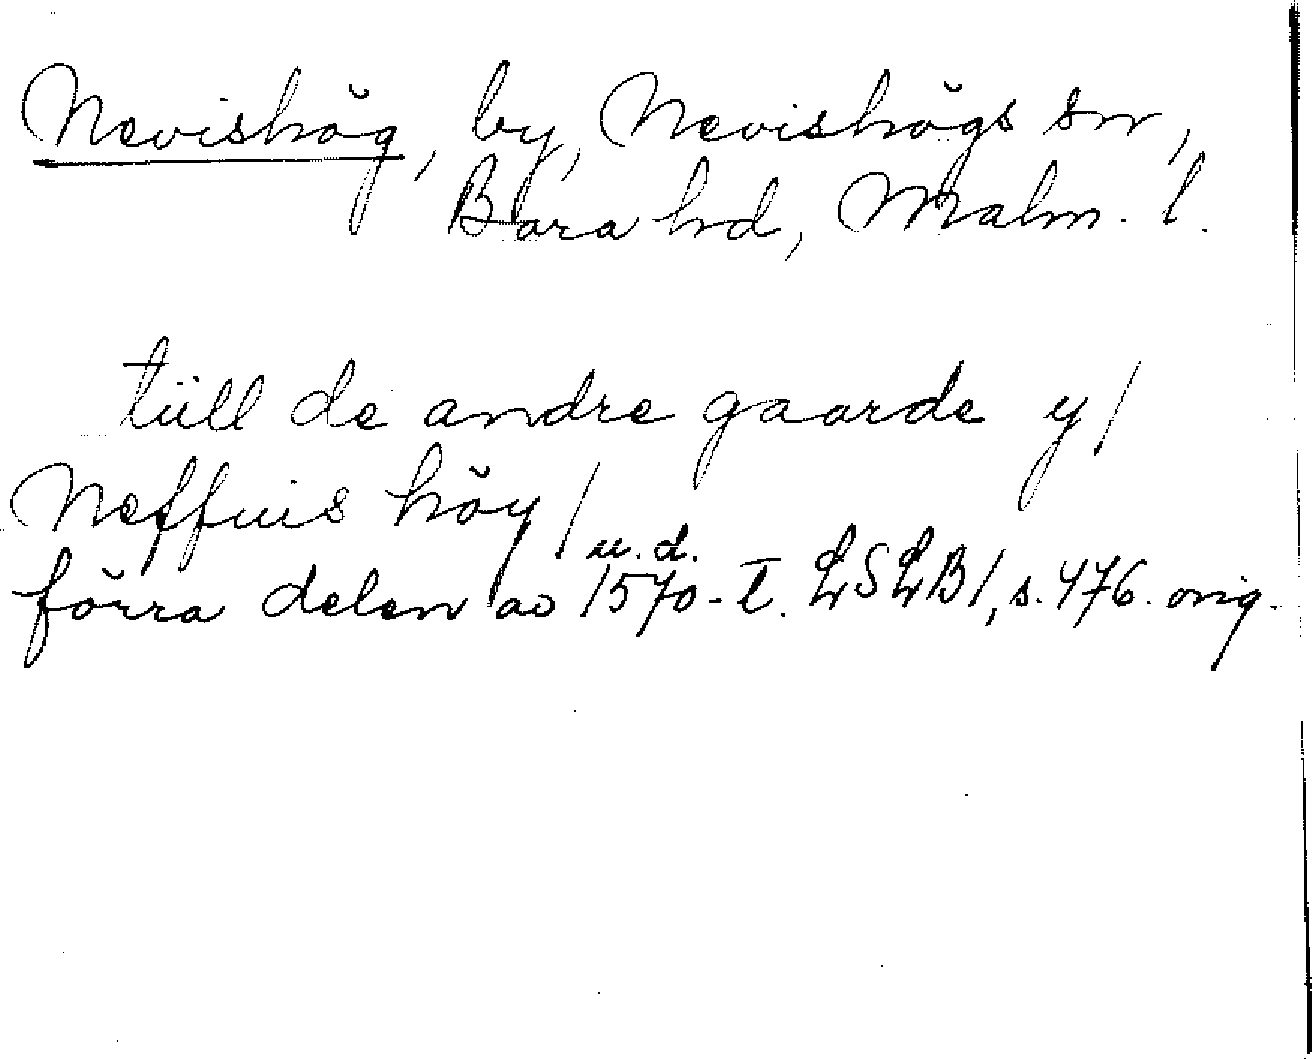 Nevishög, by, Nevishögs sn,
Bara hd, Malm. l.
tiill de andre gaarde y/
Neffuis höy/
u. d.
förra delen av 1570-t. LSLB1, s. 476. orig.